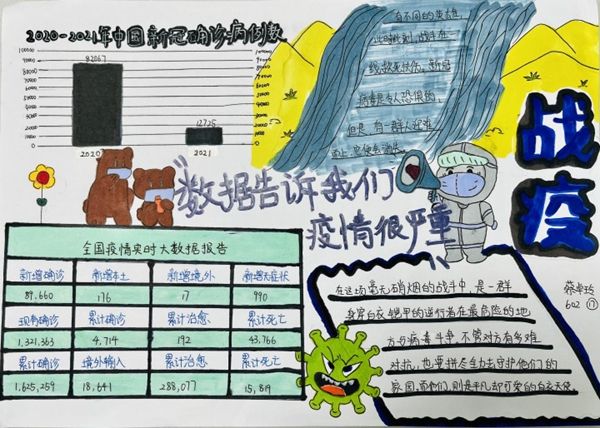 2020-2021年中国新冠确诊病例数
100000
90000
80000
70000
60000
50000
40000
30000
20000
10000
0
82067
12725
2020
2021
有不同的英雄,
战斗在
病毒是令人恐惧的,
但是,有一群人迎难
而上
战疫
"数据告诉我们
疫情很严重
全国疫情实时大数据报告
新增确诊 新增本土 新增境外 新增无症状
89,660 176 17 990
现有确诊 累计确诊 累计治愈 累计死亡
1,321,363 4,714 192 43,766
累计确诊 境外输入 累计治愈 累计死亡
1,625,259 18,641 288,077 15,819
602 17
在这场毫无硝烟的战斗中,是一群
身穿白衣铠甲的逆行者在最危险的地
方与病毒斗争,不管对方有多难
对抗,也要拼尽全力去守护他们的
家园,而他们,则是平凡却可爱的白衣天使。